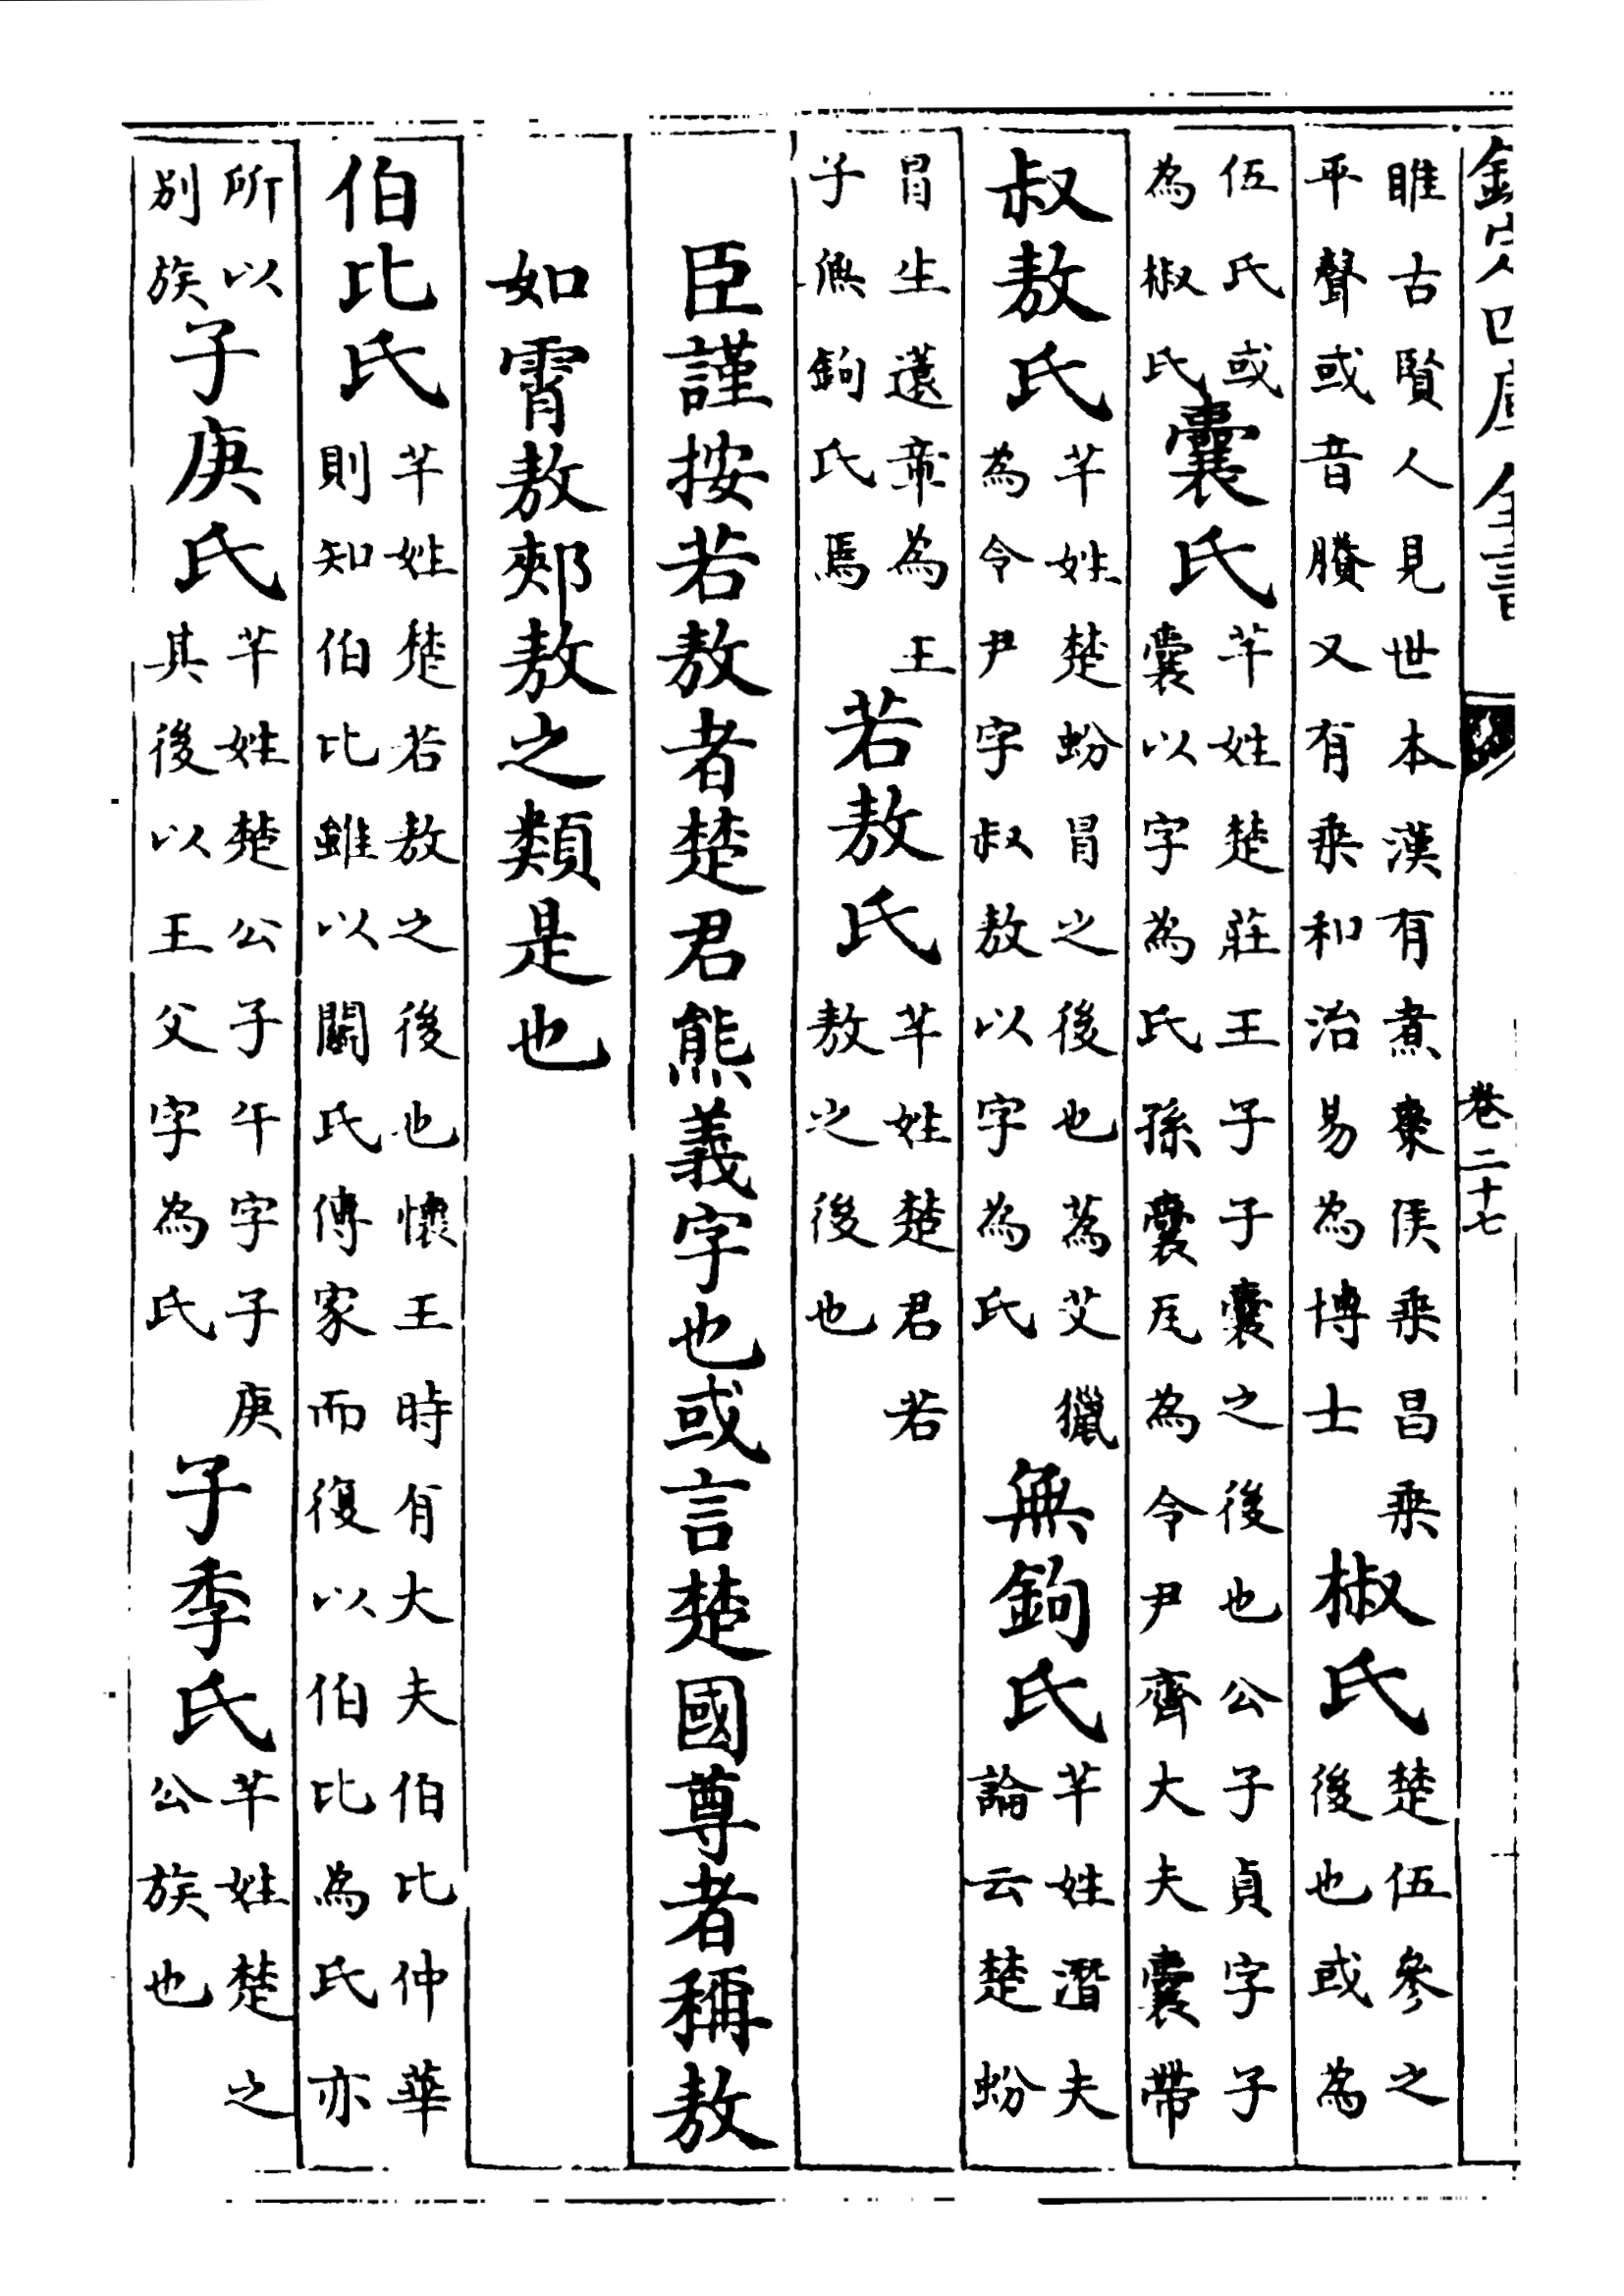 欽定四庫全書 卷二十七
睢古賢人見世本漢有煮棗侯乗昌乗
平聲或音賸又有乗和治易為博士
椒氏
楚伍參之
後也或為
伍氏或
為椒氏
囊氏
芊姓楚莊王子子囊之後也公子貞字子
囊以字為氏孫囊瓦為令尹齊大夫囊帶
叔敖氏
芊姓楚蚡冒之後也蒍艾獵
為令尹字叔敖以字為氏
無鉤氏
芊姓潛夫
論云楚蚡
冒生薳章為王
子無鉤氏焉
若敖氏
芊姓楚君若
敖之後也
臣謹按若敖者楚君熊義字也或言楚國尊者稱敖
如霄敖郟敖之類是也
伯比氏
芊姓楚若敖之後也懷王時有大夫伯比仲華
則知伯比雖以鬭氏傳家而復以伯比為氏亦
所以
別族
子庚氏
芊姓楚公子午字子庚
其後以王父字為氏
子季氏
芊姓楚之
公族也